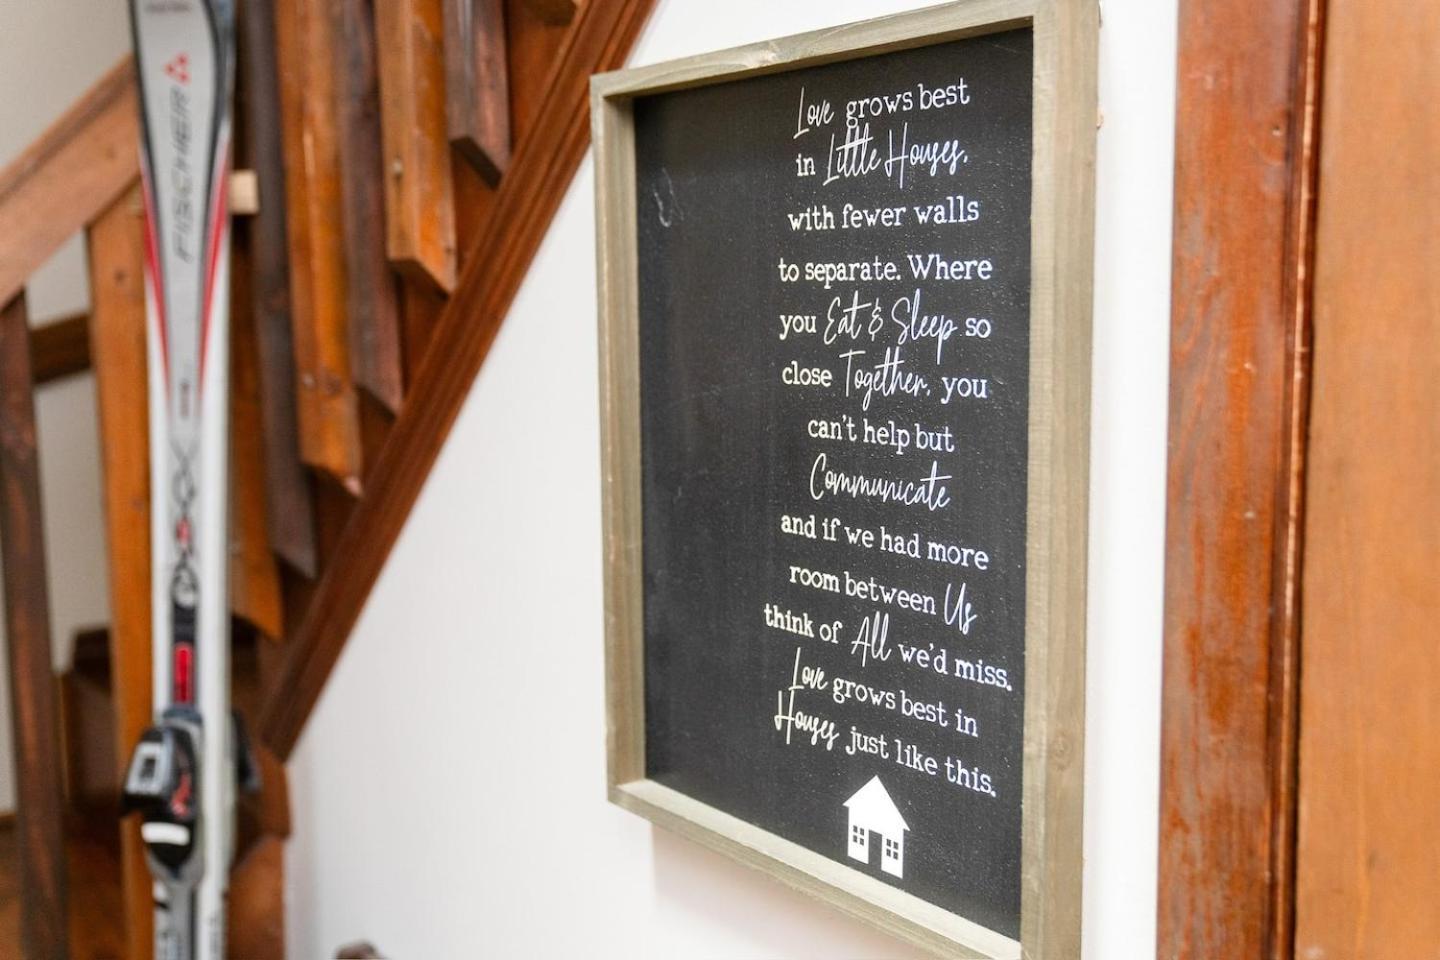 FISCHER
Love grows best
in Little Houses,
with fewer walls
to separate. Where
you Eat & Sleep so
close Together, you
can't help but
Communicate
and if we had more
room between Us
think of All we'd miss.
Love grows best in
Houses just like this.